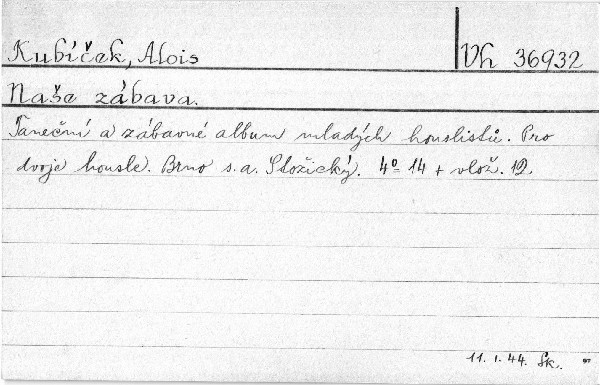 Kubíček, Alois
Vh 36932
Naše zábava.
Taneční a zábavné album mladých houslistů. Pro
dvoje housle. Brno s.a. Stožický. 4° 14 + vlož. 12.
11. 1. 44. Šk.